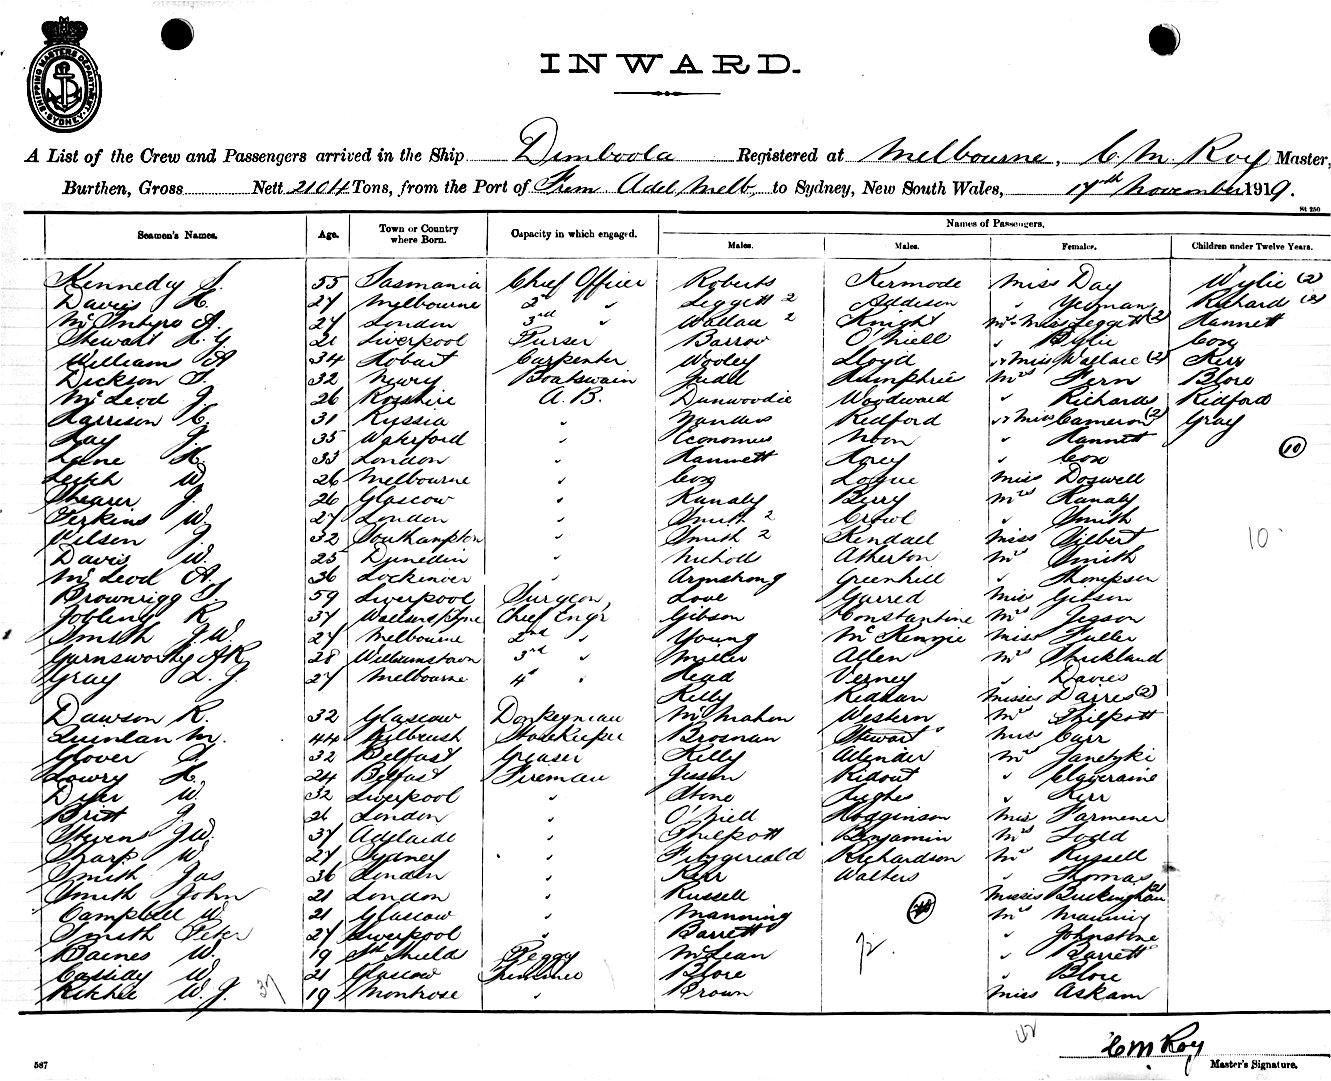 SHIPPING MASTERS DEPARTMENT SYDNEY
INWARD.
A List of the Crew and Passengers arrived in the Ship Dimboola Registered at Melbourne, C. M. Roy Master,
Burthen, Gross Nett 2104 Tons, from the Port of From Adel Melb, to Sydney, New South Wales, 17th November 1919.
St 250
Seamen's Names. Age. Town or Country where Born. Capacity in which engaged. Names of Passengers.
Males. Males. Females. Children under Twelve Years.
Kennedy 55 Tasmania Chief Officer Roberts Kermode Miss Day Wylie (2)
Davis H. 27 Melbourne 2nd " Leggett 2 Addison " Yeoman Richard
McIntyre A. 27 London 3rd " Wallace 2 Knight Mrs Miss Leggett (2) Hannett
Stewart H. G. 21 Liverpool Purser Barrow O'Niell " Cox
Williams A 34 Hobart Carpenter Wooley Lloyd " Miss Wallace (2) Kerr
Dickson 32 Newry Boatswain Judd Humphrie Mrs Fern Blore
McLeod J. 26 Rosshire A. B. Dunwoodie Woodward " Richards Ridford
Harrison C. 31 Russia " Redford " Miss Cameron (2) Gray
Lay J. 35 Waterford " Economus Moon " Hannett 10
Lane H. 33 London " Hannett Korey " Cox
Leith W. 26 Melbourne " Cox Logue Miss Doswell
Shearer J. 26 Glascow " Kanaly Berry Mrs Kanaly
Perkins W. 27 London " Smith 2 Crowl " Smith
J. 32 Southampton " Smith 2 Kendall Miss Gilbert 10
Davis W. 25 Dunedin " Atherton Mrs Smith
McLeod A. 36 Lockinver " Armstrong Greenhill " Thompson
Brownrigg 59 Liverpool Surgeon Love Garred Miss Gibson
Jobling R 37 Chief Engr Gibson Constantine Mrs Jesson
Smith J. W. 27 Melbourne 2nd " Young McKenzie Miss Fuller
Garnsworthy A R 28 Williamstown 3rd " Miller Allen Mrs Strickland
Gray L. J. 27 Melbourne 4th " Head Verney " Davies
Kelly Misses Darres (2)
Dawson R. 32 Glascow Donkeyman McMahon Western Mrs Philpott
Quinlan M. 44 Storekeeper Brosnan Stewart Miss Carr
Glover 32 Belfast Greaser Kelly Allender Mrs
Lowry H. 24 Belfast Fireman Jesson Ridout "
Dyer W. 32 Liverpool " Stone Hughes " Kerr
Britt J. 21 London " O'Niell Hodginson Miss Farmener
Steven J. W. 37 Adelaide " Philpott Benjamin Mrs Todd
Sharp W. 27 Sydney " Fitzgerald Richardson Mrs Russell
Smith Jas 36 London " Kerr Walters " Thomas
Smith John 21 London " Russell Misses Buckingham (2)
Campbell W. 21 Glascow " Manning Mrs Manning
Smith Peter 27 Liverpool " Barrett 72 " Johnstone
Baines W. 19 Sth Shields Peggy McLean " Barrett
Cassidy W. 21 Glascow Trimmer Blore " Blore
Ritchie W. J. 37 19 Montrose " Brown Miss Askam
42
C M Roy
587 Master's Signature.